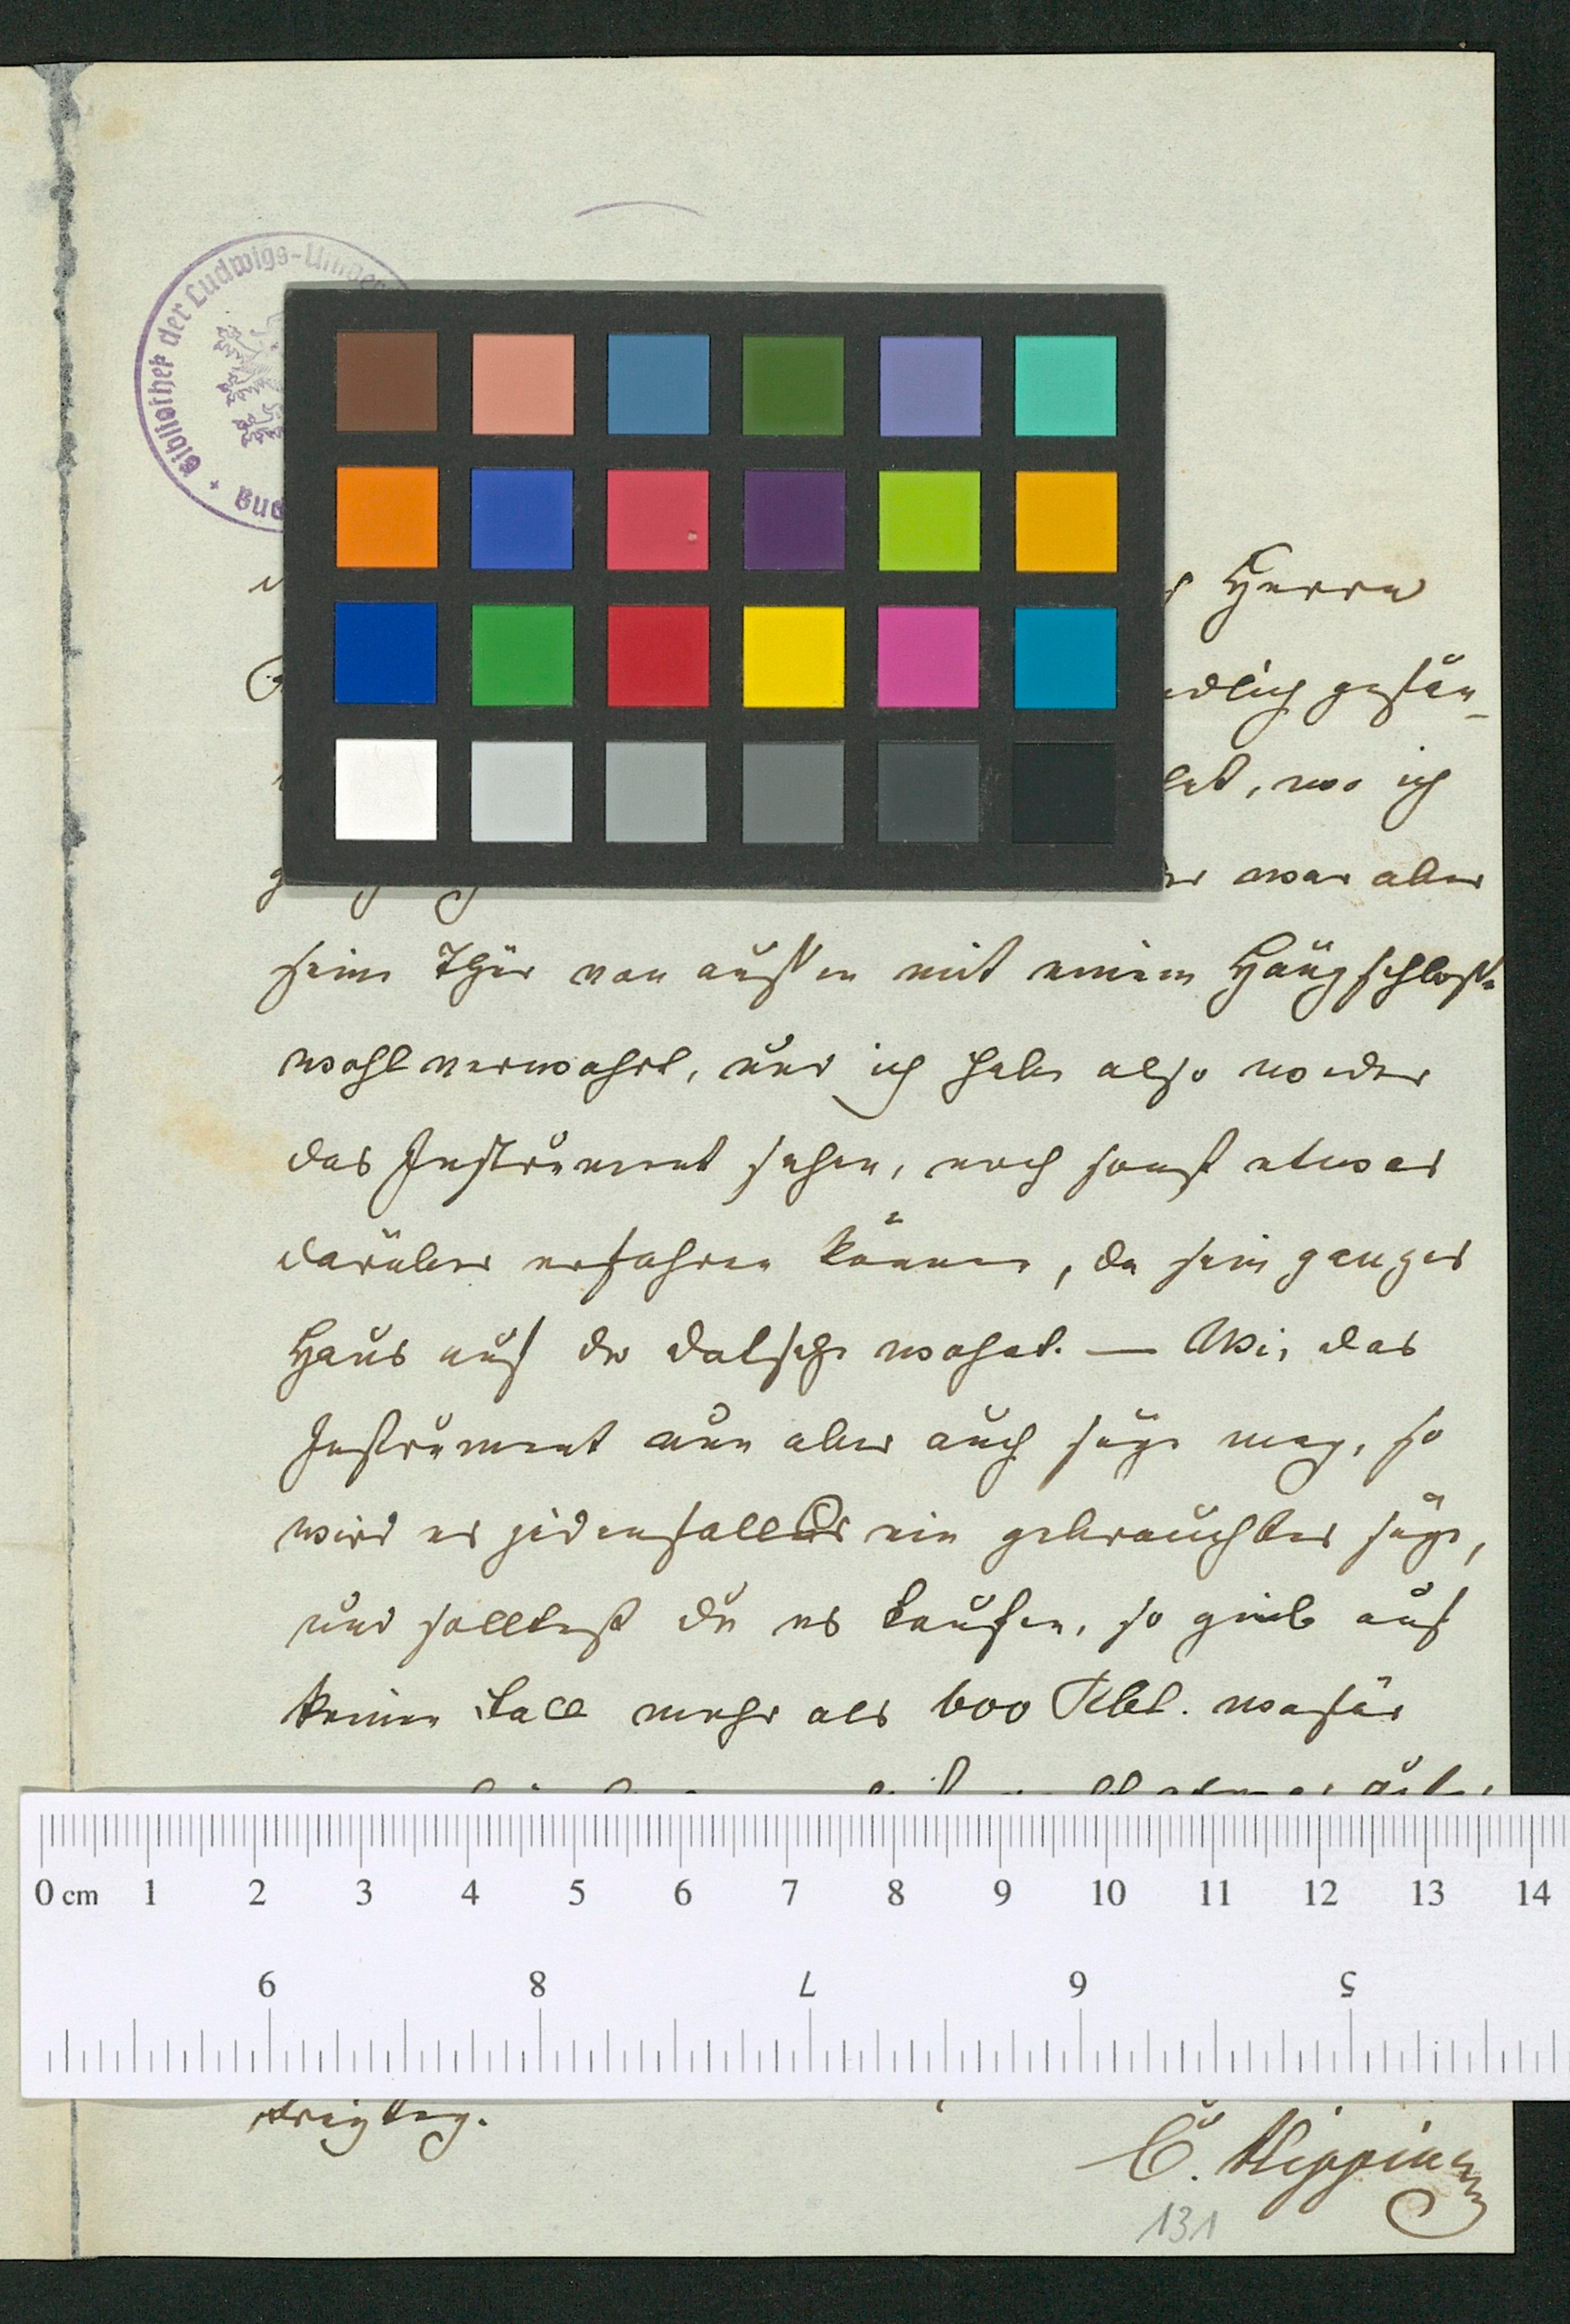 Bibliothek der Ludwigs-Univer
Herrn
dlich gefun-
hat, wo ich
er war aber
seine Thür von aussen mit einem Hängschlosse
wohl verwahrt, und ich habe also weder
das Instrument sehen, noch sonst etwas
darüber erfahren können, da sein ganzes
Haus auf der Datsche wohnt. — Wie das
Instrument nun aber auch seyn mag, so
wird es jedenfalls ein gebrauchtes seyn,
und solltest du es kaufen, so gieb auf
keinen Fall mehr als 600 Rbl. wofür
0 cm 1 2 3 4 5 6 7 8 9 10 11 12 13 14
9 8 7 6 5
Freytag.
C. Knippin
131